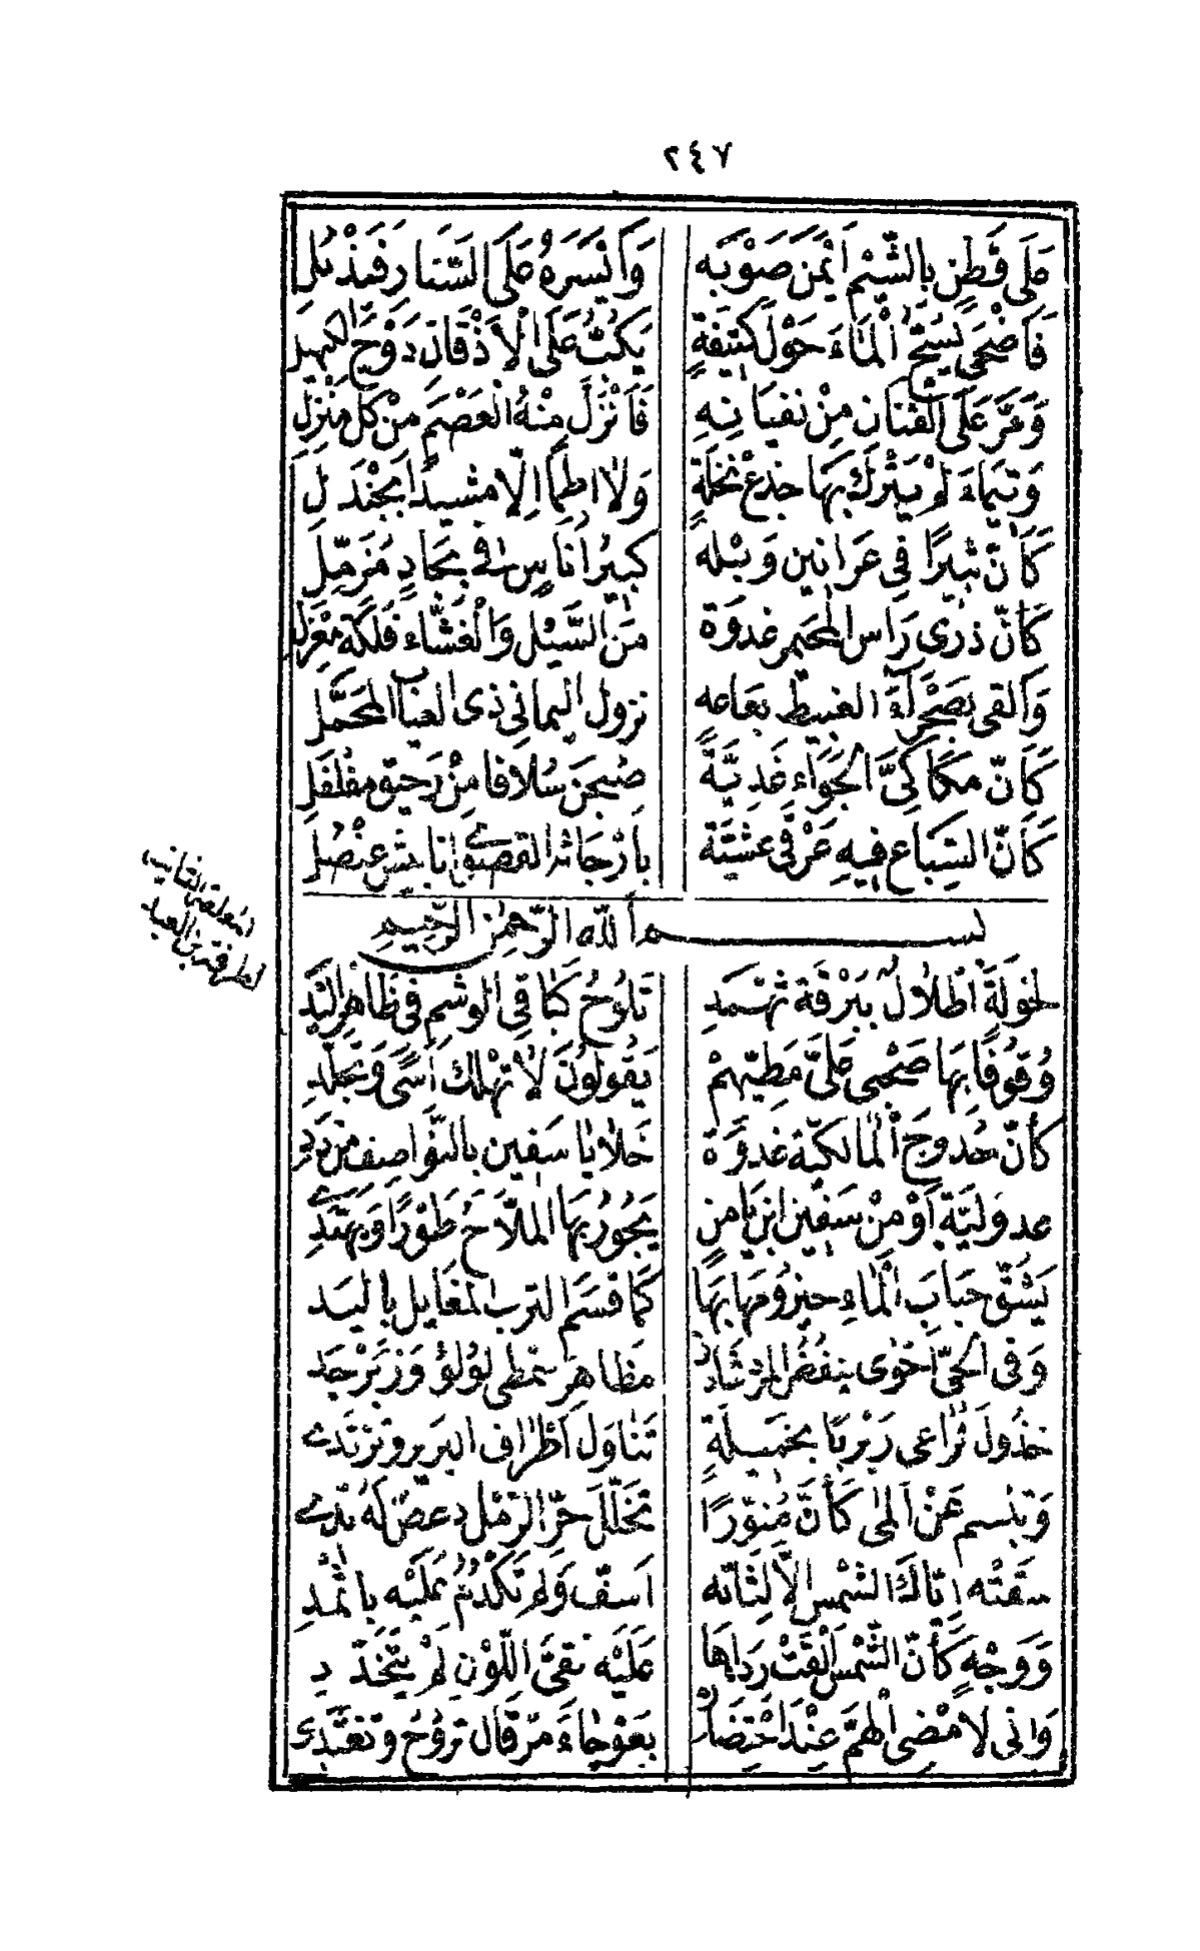 ٢٤٧
عَلَى قَطَنٍ بِالشَّيْمِ اَيْمَنَ صَوْبَه وَاَيْسَرَهُ عَلَى السَّتَا رَفَيَذْبُلِ
فَاَضْحَى يَسَحُّ الْمَاءَ حَوْلَ كَتِيفَةٍ يَكُبُّ عَلَى الْاَذْقَانِ دَوْحَ الكنهبل
وَّمَرَّ عَلَى القْنَانِ مِنْ نَفَيَانِهِ فَاَنْزَلَ مِنْهُ الْعَصْمَ مِنْ كُلِّ مَنْزِلِ
وَتَيْمَاءَ لَمْ يَتْرُكْ بِهَا جِذْعَ نَخْلَةٍ وَلَا اطمًا اِلَّا مَشيدًا بِجَنْدَلِ
كَاَنَّ ثَبِيرًا فِى عَرَانِينِ وَبْلِه كَبِيرُ اُنَاسٍ فى بِجَادٍ مُزَمَّلِ
كَاَنَّ ذرٰى رَاسِ المُجَيمر غدْوَة مِنَ السَّيْلِ وَالْغُشَّاء فَلكَة مِغْزَلِ
وَاَلقى بِصَحْرَآءَ الغبيطِ بَعَاعه نزول اليماني ذى العياب المحَمَّلِ
كَاَنَّ مَكَاكِىَّ الجِوَاءِ غُدَيَّةً صُبِحْنَ سُلَافا مِنْ رَحِيق مفَلْفَلِ
كَاَنَّ السِّبَاعَ فِيهِ غَرْقٰى عَشِيَّة بِاَرْجَائِهِ القُصْوى انابيش عنْصُلِ
المعلقة الثانيه
لطرفة بن العبد
بسم اللّٰه الرَّحمٰن الرَّحِيمِ
لخولَةَ اَطْلَالٌ بِبَرْقَة ثَهْمَدِ تَلُوحُ كَبَاقِى الوَشمِ فى ظَاهِر اليَدِ
وُقُوفًا بِهَا صَحْبى عَلَىَّ مَطِيّهمْ يَقُولُونَ لَا تَهْلكْ اَسًى وَتَجَلَّدِ
كاَنَّ حُدوجَ الْمَالكيّة غدْوَة خَلَايَا سَفين بالنَّوَاصِف مِنْ دَدِ
عدوليَّةٍ اَوْ مِنْ سَفِين ابن يَامِنٍ يَجُورُ بِهَا المَلَّاحُ طَوْرًا وَيَهْتَدِى
يَشُقّ حَبَابَ الْمَاءِ حيزومها بِهَا كَمَا قسَمَ الترب المفَايل باليَد
وَفِى الحَىّ اَحْوٰى ينفُضُ المَرْدَ شَادِنٌ مظاهر سمْطى لؤلؤ وَزبَرْجَد
خذُولٌ تُرَاعى رَبْرَبًا بخَميلَةٍ تَنَاوَل اَطْرَاف البَرير وتَرْتَدى
وَتَبْسم عَنْ اَلمٰى كَاَنَّ مُنَوّرًا تَخَلَّلَ حُرَّ الرَّمْلِ دعْصٌ لَهُ نَدِى
سَقَتْه اِيَاةُ الشَّمْسِ اِلَّا لِثَاته اُسفَّ وَلَم تَكْدُمْ عَلَيْه باثْمدِ
وَوَجْهٍ كَاَنَّ الشَّمْسَ اَلْقَتْ رِدَاءَهَا عَلَيْه نقىّ اللَّوْنِ لَمْ يَتَخَدَّدِ
وَانى لَاُمْضِى الْهَمَّ عِنْدَ احْتِضَارِه بعَوْجَاءَ مرْقَال تَروُحُ وتغتَدى